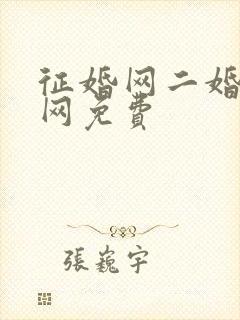 征婚网二婚
网免费
張巍宇